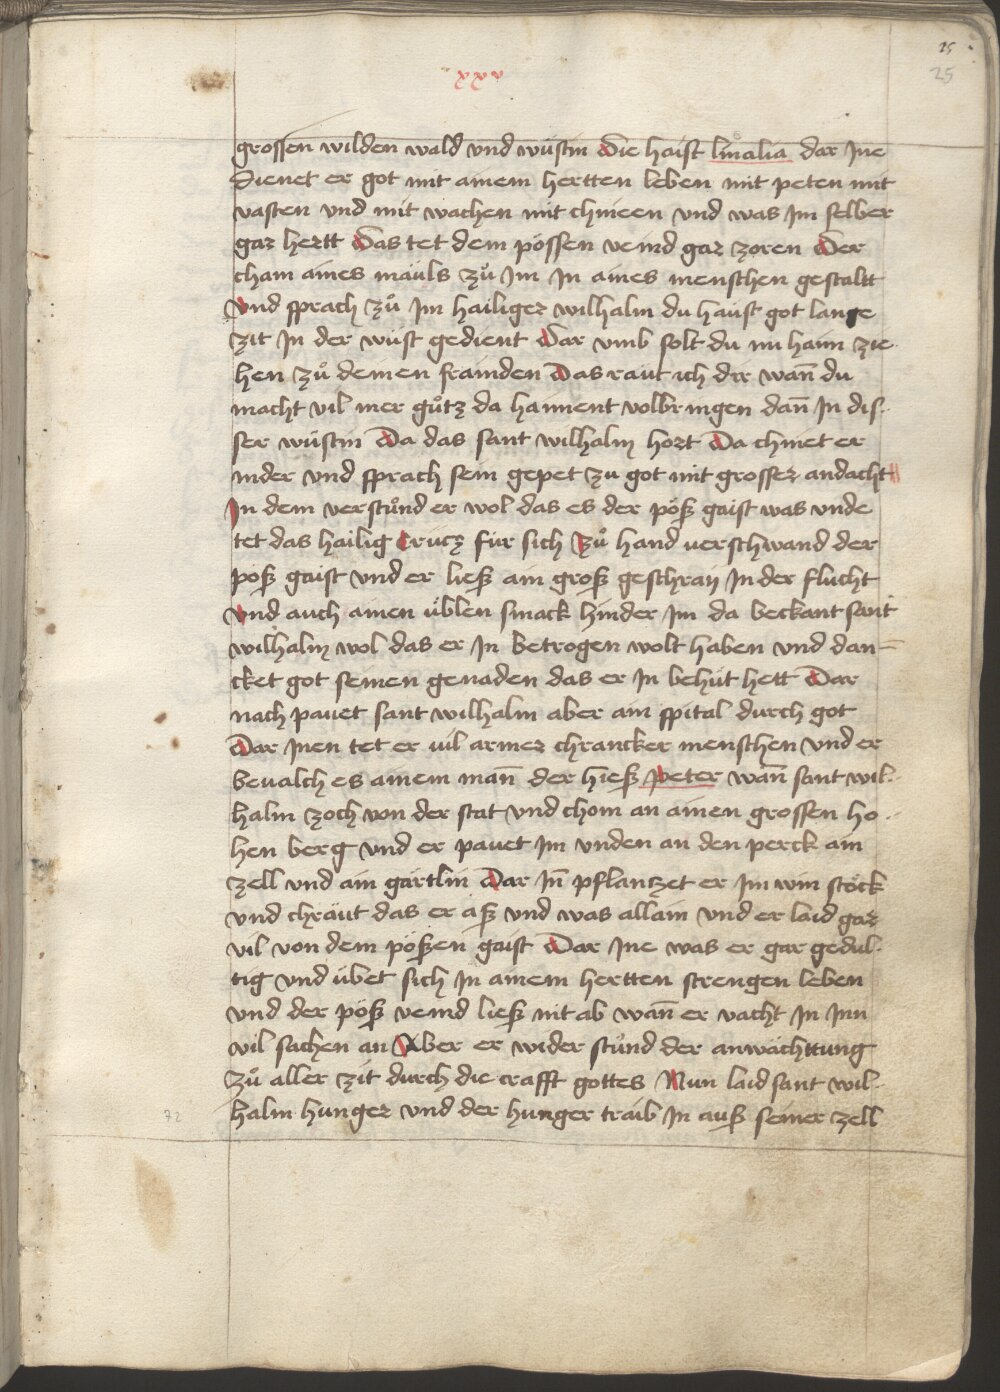 25
25
xxv
grossen wilden wald vnd wüstin Die haist liualia dar Jne
dienet er got mit ainem hertten leben mit peten mit
vasten vnd mit wachen mit chnieen vnd was Jm selber
gar hertt Das tet dem pössen veind gar zoren Der
cham aines mäuls zů Jm Jn aines menschen gestaltt
Vnd sprach zů Jm hailiger wilhalm du haust got lange
zit Jn der wüst gedient Dar vmb solt du nu haim zie
hen zů deinen frainden Das raut ich dir wan̄ du
macht vil mer gůtz da haiment volbringen dan̄ Jn dis
ser wüstin Da das sant wilhalm hort Da chniet er
nider vnd sprach sein gepet zu got mit grosser andacht
Jn dem verstůnd er wol das es der pöß gaist was vnde
tet das hailig Crücz für sich Zů hand uerschwand der
pöß gaist vnd er ließ ain groß geschray Jn der flucht
Vnd auch ainen üblen smack hinder Jm da beckant sant
wilhalm wol das er Jn betrogen wolt haben vnd dan=
cket got seinen genaden das er Jn behüt hett Dar
nach pauet sant wilhalm aber ain spital durch got
Dar Jnen tet er uil armer chrancker menschen Vnd er
beualch es ainem man̄ der hieß Peter wan̄ sant wil
halm zoch von der stat vnd chom an ainen grossen ho
hen berg vnd er pauet Jm vnden an den perck ain
zell vnd ain gärtlin Dar Jn̄ pflantzet er Jm win stöck
vnd chräut das er aß vnd was allain vnd er laid gar
vil von dem pößen gaist Dar Jne was er gar gedul
tig vnd übet sich Jn ainem hertten strengen leben
vnd der pöß veind ließ nit ab wan̄ er vacht Jn Jnn
vil sachen an Aber er wider stůnd der anwächttung
Zů aller zit durch die crafft gottes Nun laid sant wil
halm hunger vnd der hunger traib Jn auß seiner zell
72